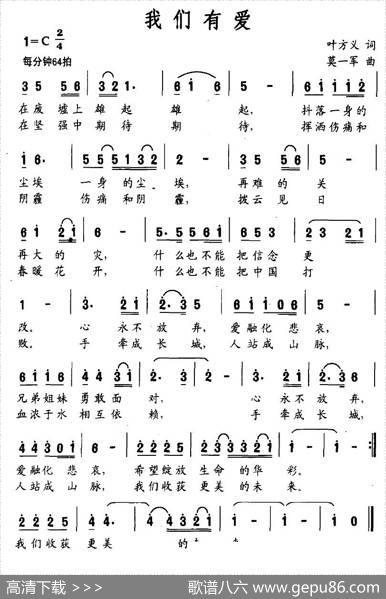 我们有爱
1=C 2/4
叶方义 词
每分钟64拍
莫一军 曲
35 56 321 2 6 1 6 5 6 11112
在废 墟上 雄 起 雄 起, 抖落一身的
在坚 强中 期 待 期 待, 挥洒伤痛和
1 6. 555 5132 2 - 3 5 5653 5 -
尘埃 一身 的尘 埃, 再难 的 关
阴霾 伤痛 和阴 霾, 拨云 见 日
6 1 6 21 6 - 5.5 561 5.5 65 23 3
再大 的 灾, 什么 也不能 把信念 更
春暖 花 开, 什么 也不能 把中国 打
1 - 3. 21 2.3 5 6111 21 5 -
改。 心 永不 放弃, 爱融化 悲 哀,
败。 手 牵成 长城, 人站成 山 脉,
6116 44 31 2 - 3. 21 2.36
兄弟姐妹 勇敢面 对, 心 永不 放弃,
血浓于水 相互依 赖, 手 牵成 长城,
44301 6 - 2225 2123 1 -
爱融化 悲 哀, 希望绽放 生命的华 彩。
人站成 山 脉, 我们收获 更美的未 来。
2225 2 2 - 21 23 1 - 1 - 1 0
我们收获 更美 的
高清下载 >>>
歌谱八六 www.gepu86.com